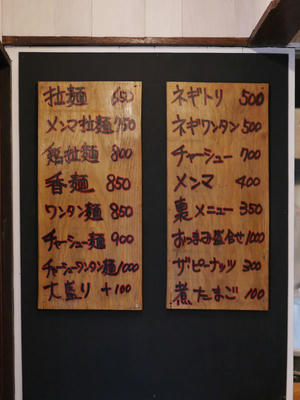 拉麺 650
メンマ拉麺 750
葱拉麺 800
香麺 850
ワンタン麺 850
チャーシュー麺 900
チャーシューワンタン麺 1000
大盛り +100
ネギトリ 500
ネギワンタン 500
チャーシュー 700
メンマ 400
裏メニュー 350
おつまみ盛合せ 1000
ザ・ピーナッツ 300
煮たまご 100